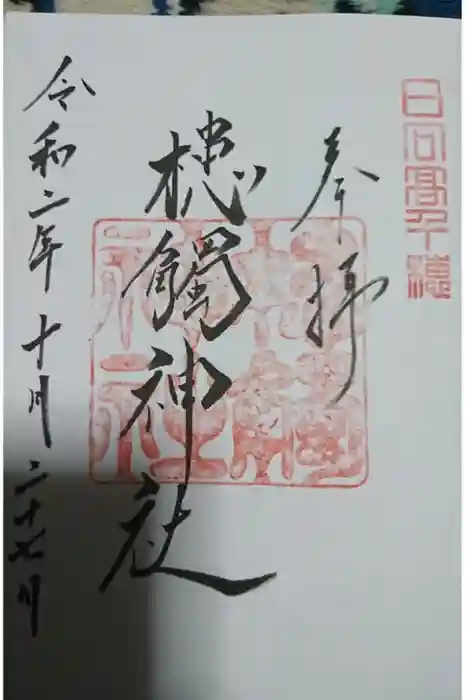 日向髙千穂
奉拝
槵觸神社
令和二年十月二十七日